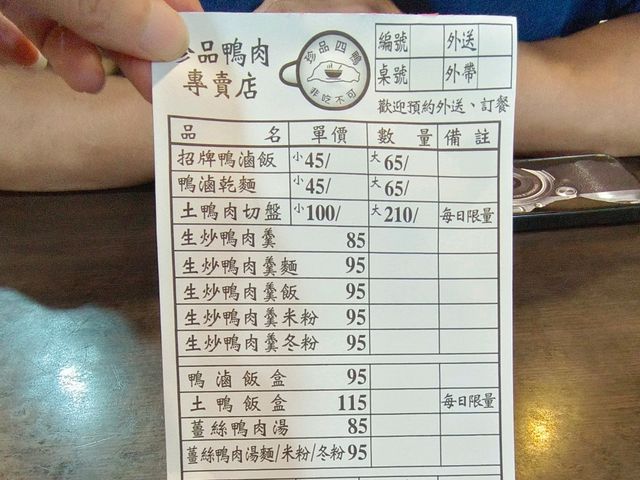 珍品鴨肉
專賣店
珍品四鴨
非吃不可
編號 外送
桌號 外帶
歡迎預約外送、訂餐
品名 單價 數量 備註
招牌鴨滷飯 小45/ 大65/
鴨滷乾麵 小45/ 大65/
土鴨肉切盤 小100/ 大210/ 每日限量
生炒鴨肉羹 85
生炒鴨肉羹麵 95
生炒鴨肉羹飯 95
生炒鴨肉羹米粉 95
生炒鴨肉羹冬粉 95
鴨滷飯盒 95
土鴨飯盒 115 每日限量
薑絲鴨肉湯 85
薑絲鴨肉湯麵/米粉/冬粉95